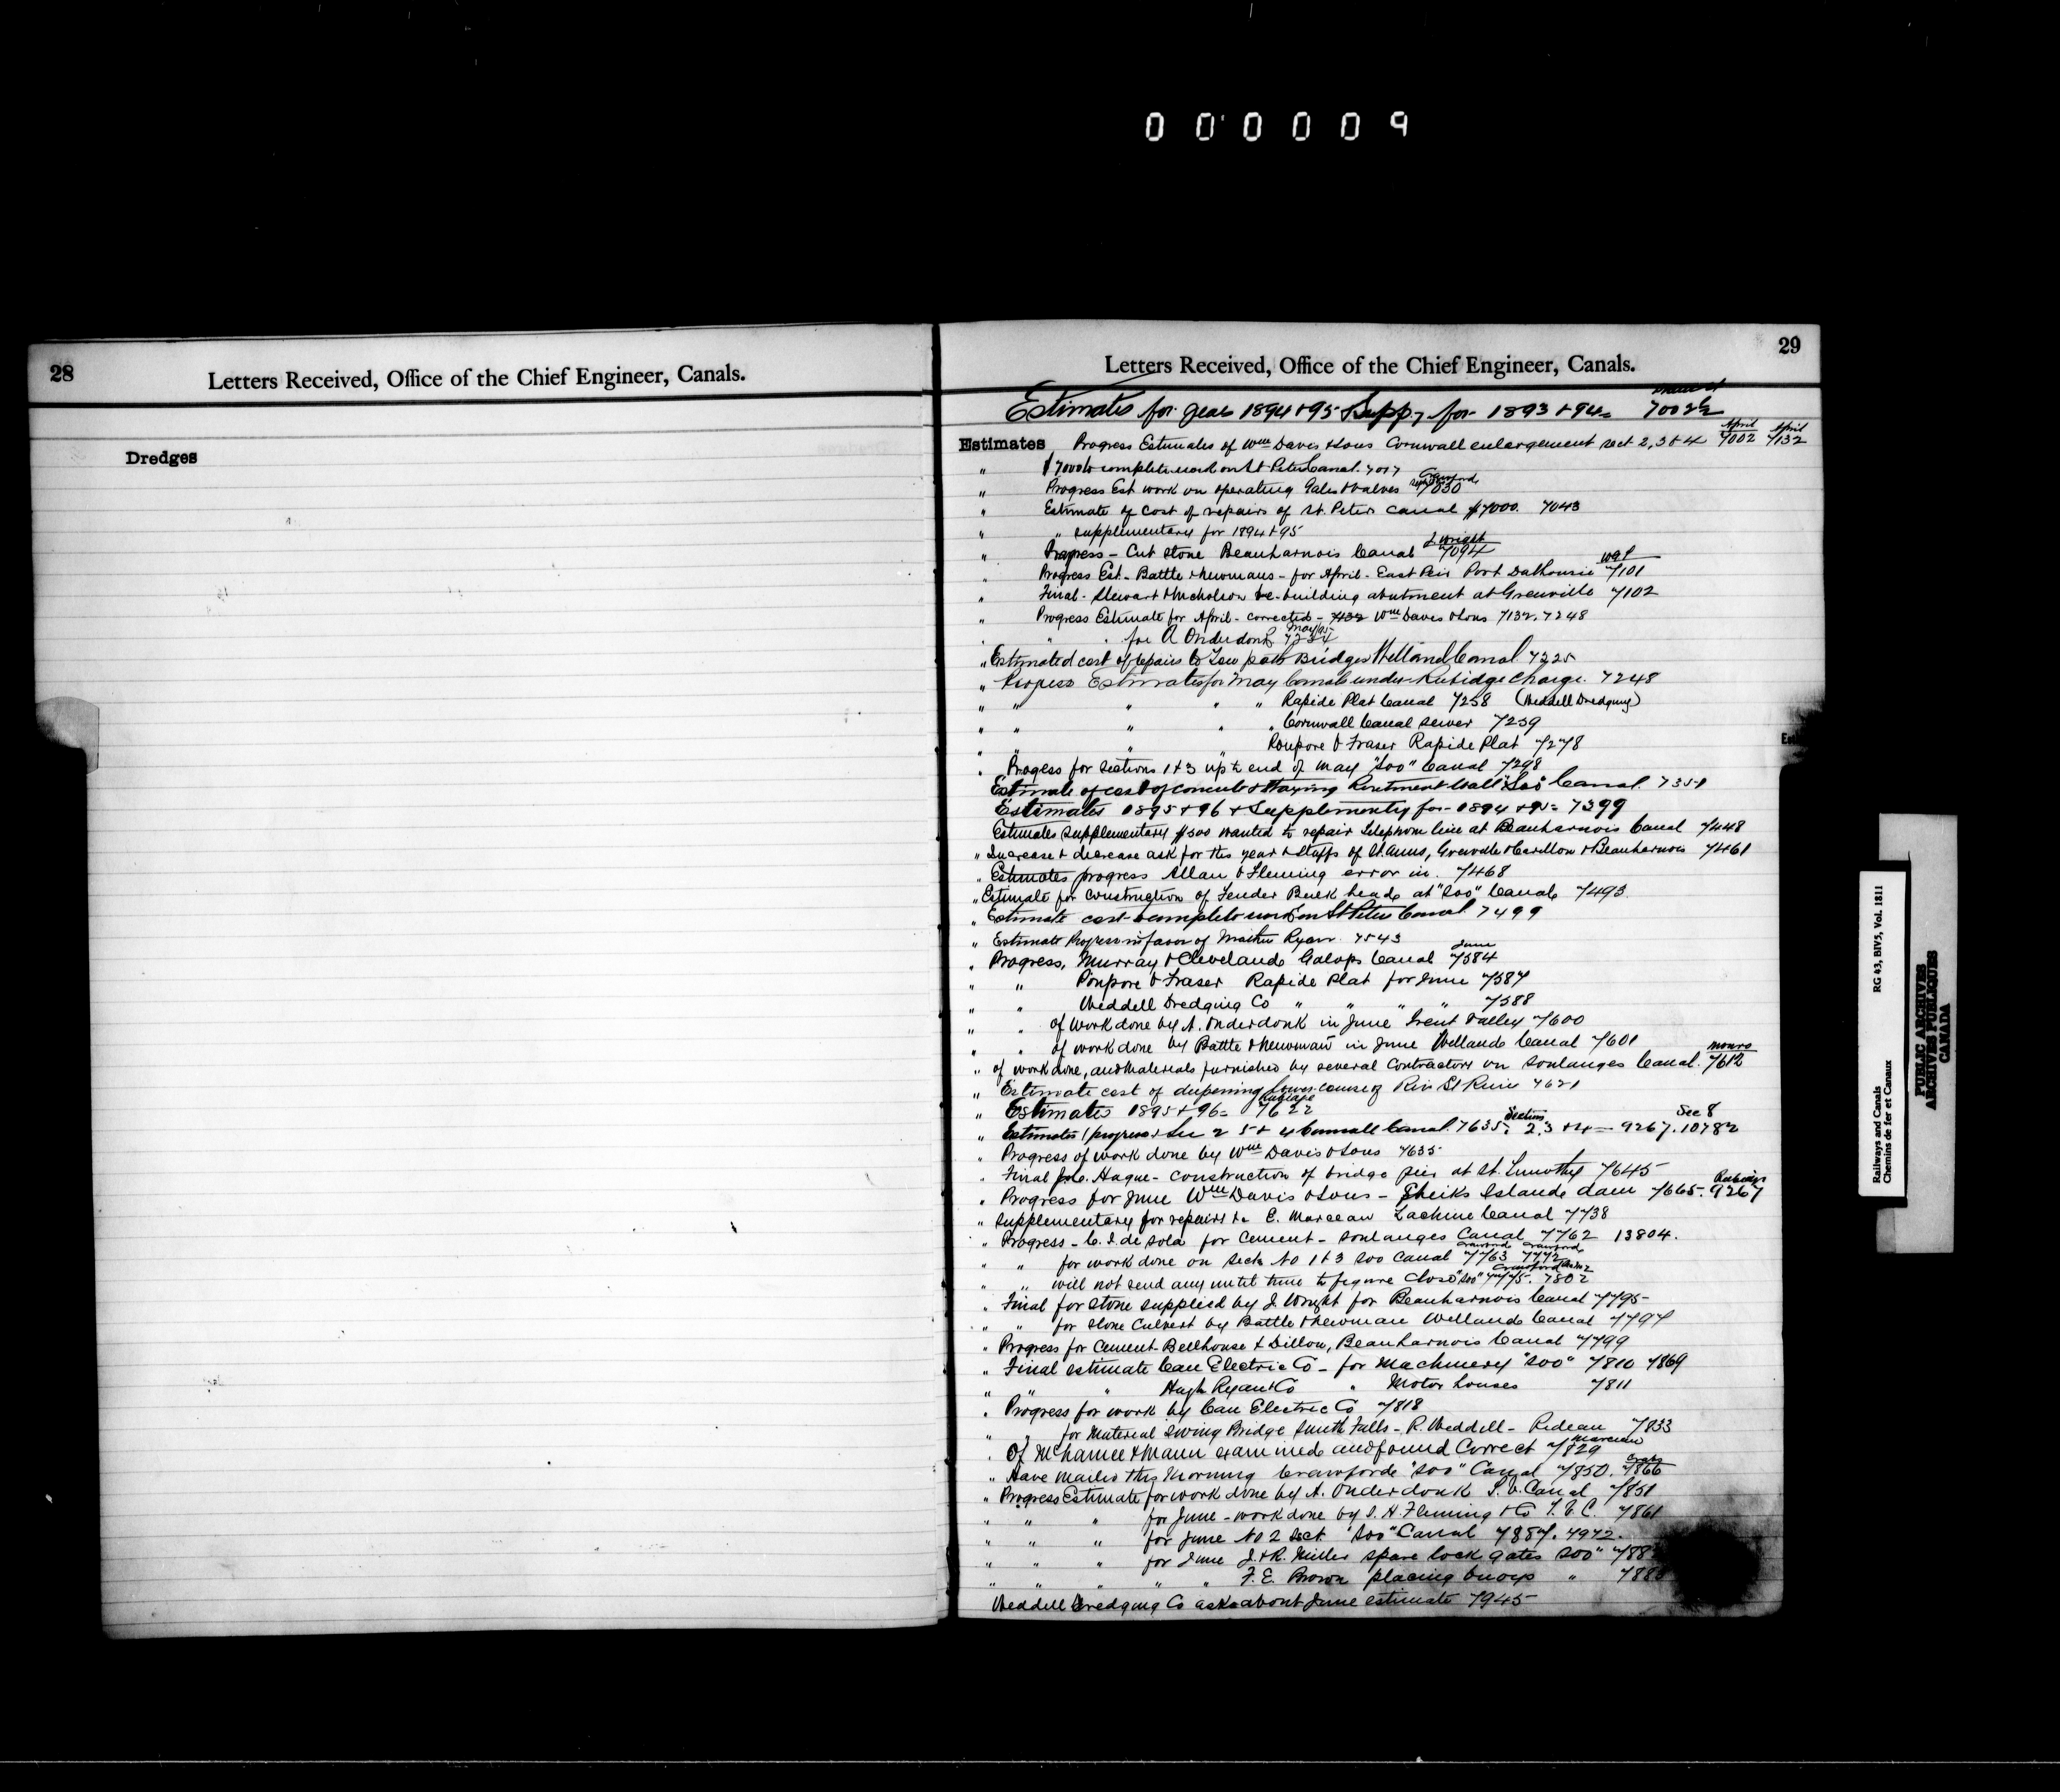 0 0 0 0 0 9
28
Letters Received, Office of the Chief Engineer, Canals.
Dredges
29
Letters Received, Office of the Chief Engineer, Canals.
Estimates for year 1894 & 95 Supp, for 1893 & 94 =
Estimates Progress Estimates of Wm Davis & Sons Cornwall enlargement sect 2, 3 & 4 April 7002 April 7132
" $7000 to complete work on St Peter Canal. 7017
" Progress Est work on operating Gates & valves Crawford 7030
" Estimate of cost of repairs of St. Peters Canal $7000. 7043
" " supplementary for 1894 & 95
" Progress - Cut Stone Beauharnois Canal J. Wright 7094
" Progress Est. - Battle & Newmans - for April - East Pier Port Dalhousie 7101
" Final - Stewart & Nicholson re-building abutment at Grenville 7102
" Progress Estimate for April - corrected - 7132 Wm Davis & Sons 7132. 7248
" " for A Onderdonk May/95 7234
" Estimated cost of repairs to Tow path Bridges Welland Canal 7225
" Progress Estimates for May Canals under Rubidge Charge. 7248
" " " " " Rapide Plat Canal 7258 (Weddell Dredging)
" " " " " Cornwall Canal sewer 7259
" " " " Poupore & Fraser Rapide Plat 7278
" Progess for Sections 1 & 3 up to end of May "Soo" Canal 7298
Estimate of cost of concrete & Wall "Soo" Canal. 7351
Estimates 1895 & 96 & Supplementy for 1894 & 95 = 7399
Estimates Supplementary $500 wanted to repair telephone line at Beauharnois Canal 7448
" Increase & decrease ask for this year & Staffs of St. Anns, Grenville & Carillon & Beauharnois 7461
" Estimates progress Allan & Fleming error in. 7468
" Estimate for Construction of Fender Bulk heads at "Soo" Canal 7493
" Estimate cost to complete work on St Peters Canal 7499
" Estimate Progress in favor of Ryan. 7543
" Progress, Murray & Cleveland Galops Canal June 7584
" " Poupore & Fraser Rapide Plat for June 7587
" " Weddell Dredging Co " " " " 7588
" " of work done by A. Onderdonk in June Trent Valley 7600
" " of work done by Battle & Newman in June Welland Canal 7601
" of work done, and Materials furnished by several Contractors on Soulanges Canal. Monro 7612
" Estimate cost of deepening lower course of Riv St 7621
" Estimates 1895 & 96 = Rubidge 7622
" Estimates (progress) Sec 2 5 & 4 Cornwall Canal. 7635; Section 2.3 & 4 = 9267. Sec 8 10782
" Progress of work done by Wm Davis & Sons 7635
" Final Jno. Hague - construction of bridge pier at St. Timothy 7645
" Progress for June Wm Davis & Sons - Sheiks Island dam 7665. Rubidge 9267
" Supplementary for repairs &c E. Marceau Lachine Canal 7738
" Progress - C. I. de Sola for Cement - Soulanges Canal 7762 13804.
" " for work done on Sects No 1 & 3 Soo Canal Crawford 7763 Crawford 7772
" " will not send any until time to figure close "Soo" 7775. Crawford 7802
" Final for Stone supplied by J Wright for Beauharnois Canal 7795
" " for Stone Culvert by Battle & Newman Welland Canal 7797
" Progress for Cement - Bellhouse & Dillon, Beauharnois Canal 7799
" Final estimate Can Electric Co - for Machinery "Soo" 7810 7869
" " " Hugh Ryan & Co " Motor houses 7811
" Progress for work by Can Electric Co 7818
" " for Material Swing Bridge Smith Falls - R. Weddell - Rideau 7833
" Of McNamee & Mann examined and found Correct Marceau 7829
" Have mailed this morning Crawford "Soo" Canal 7850. 7866
" Progress Estimate for work done by A. Onderdonk T. V. Canal 7851
" " " for June - work done by S. H. Fleming & Co T. V. C. 7861
" " " for June No 2 Sect. "Soo" Canal 7887. 4972.
" " " for June J. & R. Miller spare lock gates "Soo"
" " " " " F. E. Brown placing buoys "
Weddell Dredging Co asks about June estimate 7945
Railways and Canals
Chemins de fer et Canaux
RG 43, BIV5, Vol. 1811
PUBLIC ARCHIVES
ARCHIVES PUBLIQUES
CANADA